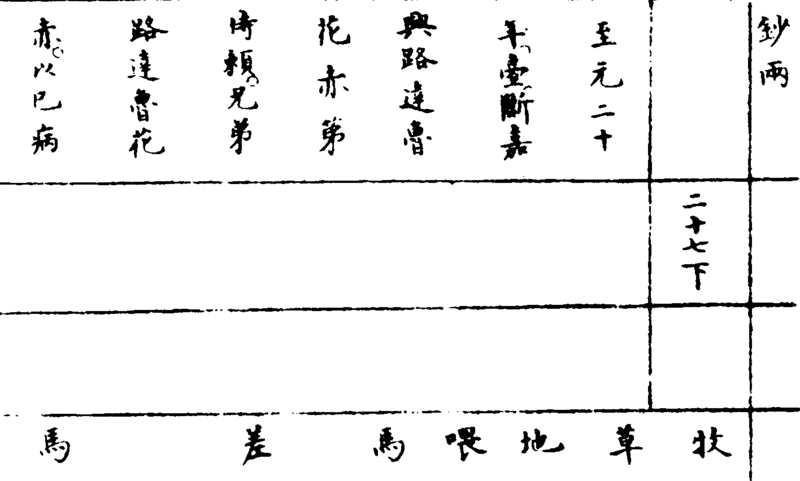 鈔兩
二十七下
至元二十
年臺斷嘉
興路達魯
花赤第
倚賴兄弟
路達魯花
赤以巳病
牧草地喂馬差馬